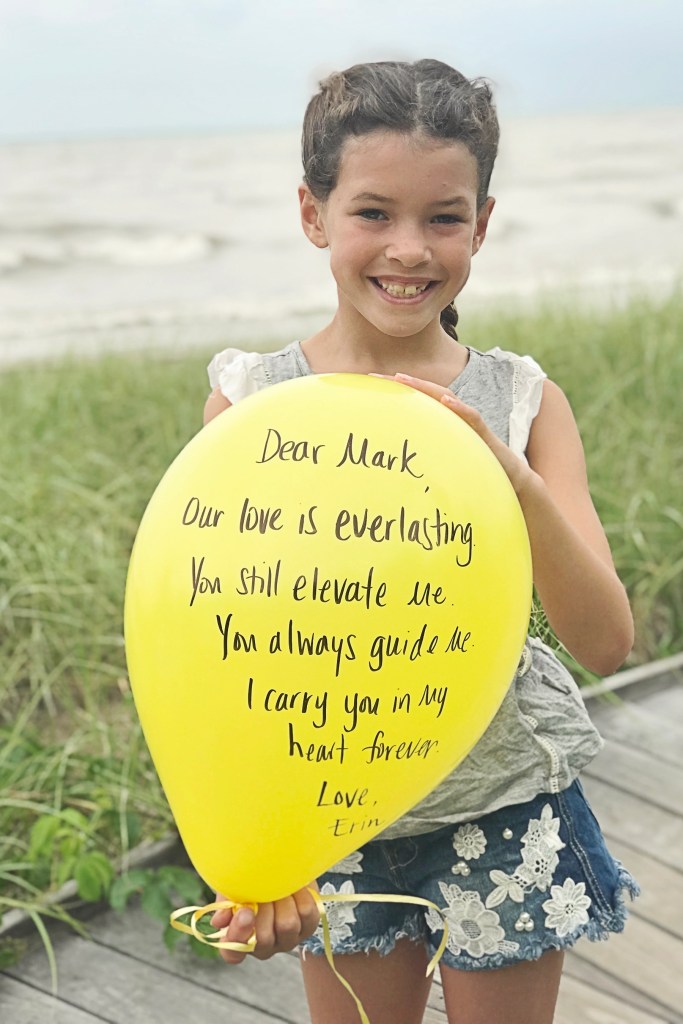 Dear Mark,
Our love is everlasting.
You still elevate me.
You always guide me.
I carry you in my
heart forever.
Love,
Erin